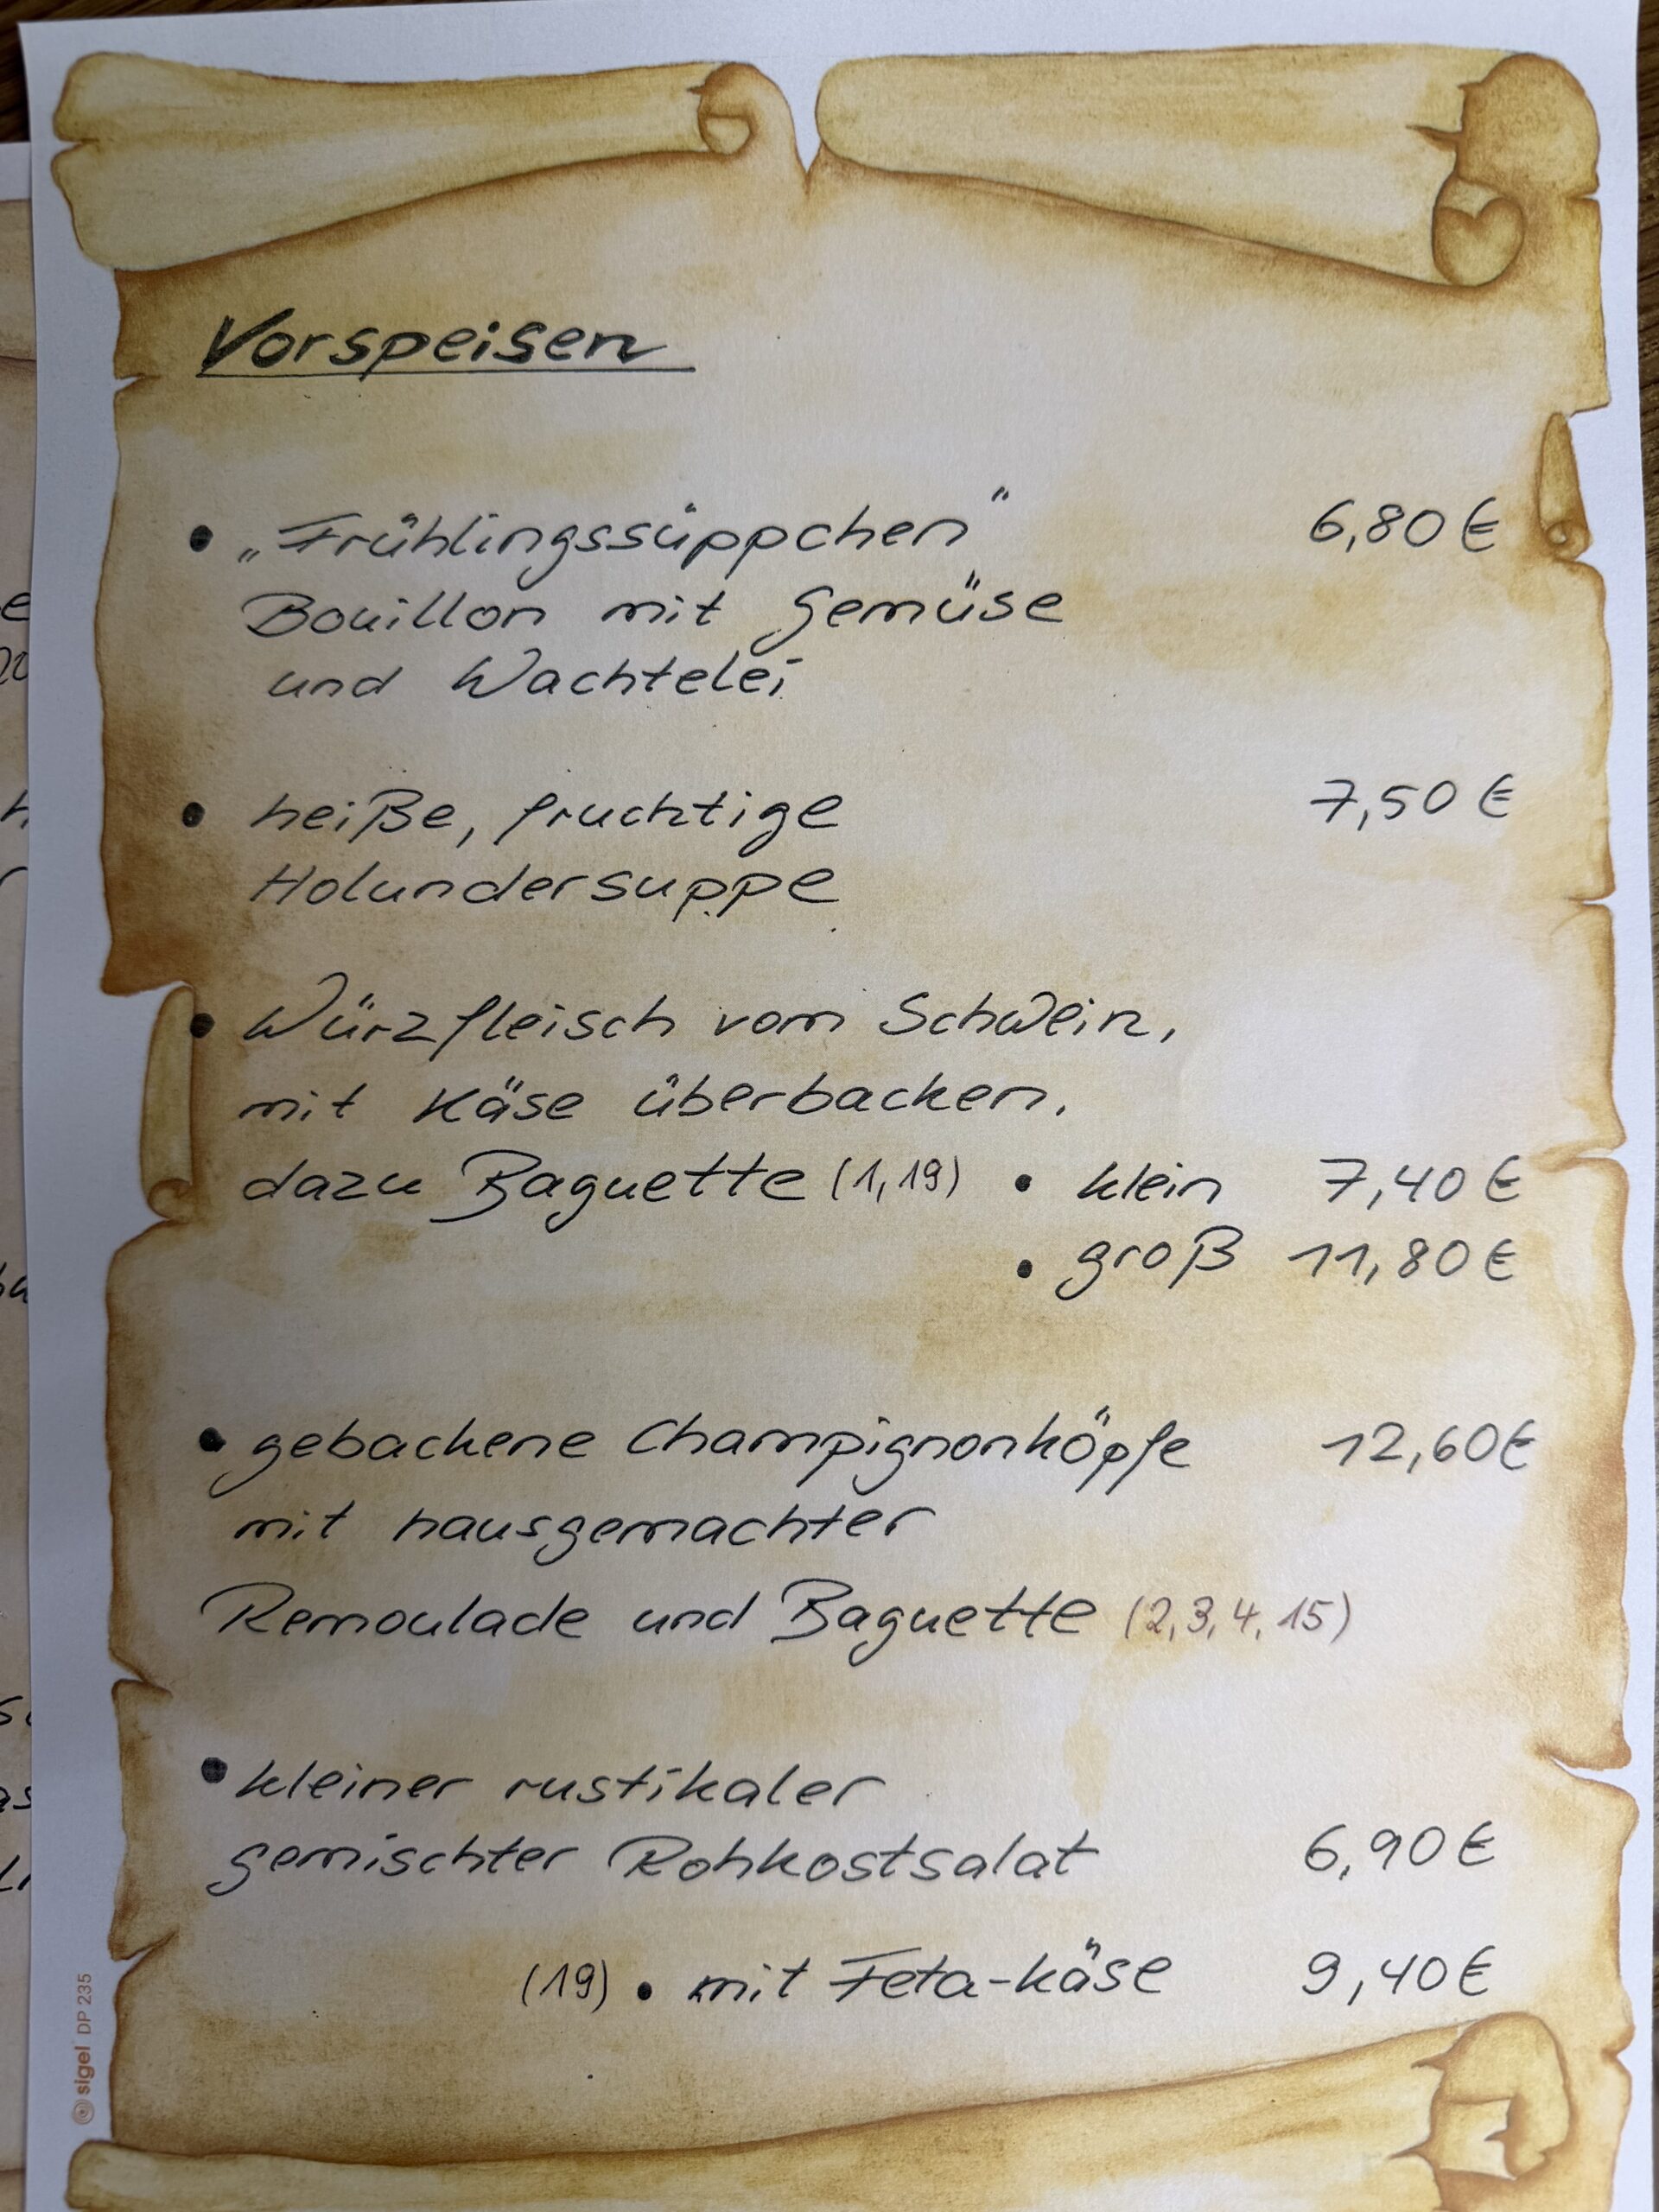 Vorspeisen
• „Frühlingssüppchen" 6,80 €
Bouillon mit Gemüse
und Wachtelei
• heiße, fruchtige 7,50 €
Holundersuppe
• Würzfleisch vom Schwein,
mit Käse überbacken,
dazu Baguette (1,19) • klein 7,40 €
• groß 11,80 €
• gebackene Champignonköpfe 12,60 €
mit hausgemachter
Remoulade und Baguette (2,3,4,15)
• kleiner rustikaler
gemischter Rohkostsalat 6,90 €
(19) • mit Feta-Käse 9,40 €
sigel DP 235